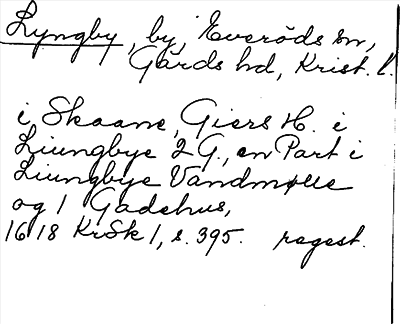 Lyngby, by, Everöds sn,
Gärds hd, Krist. l.
i Skaane, Giers H. i
Liungbye 2 G., en Part i
Liungbye Vandmølle
og 1 Gadehus,
1618 KrSk 1, s. 395. regest.